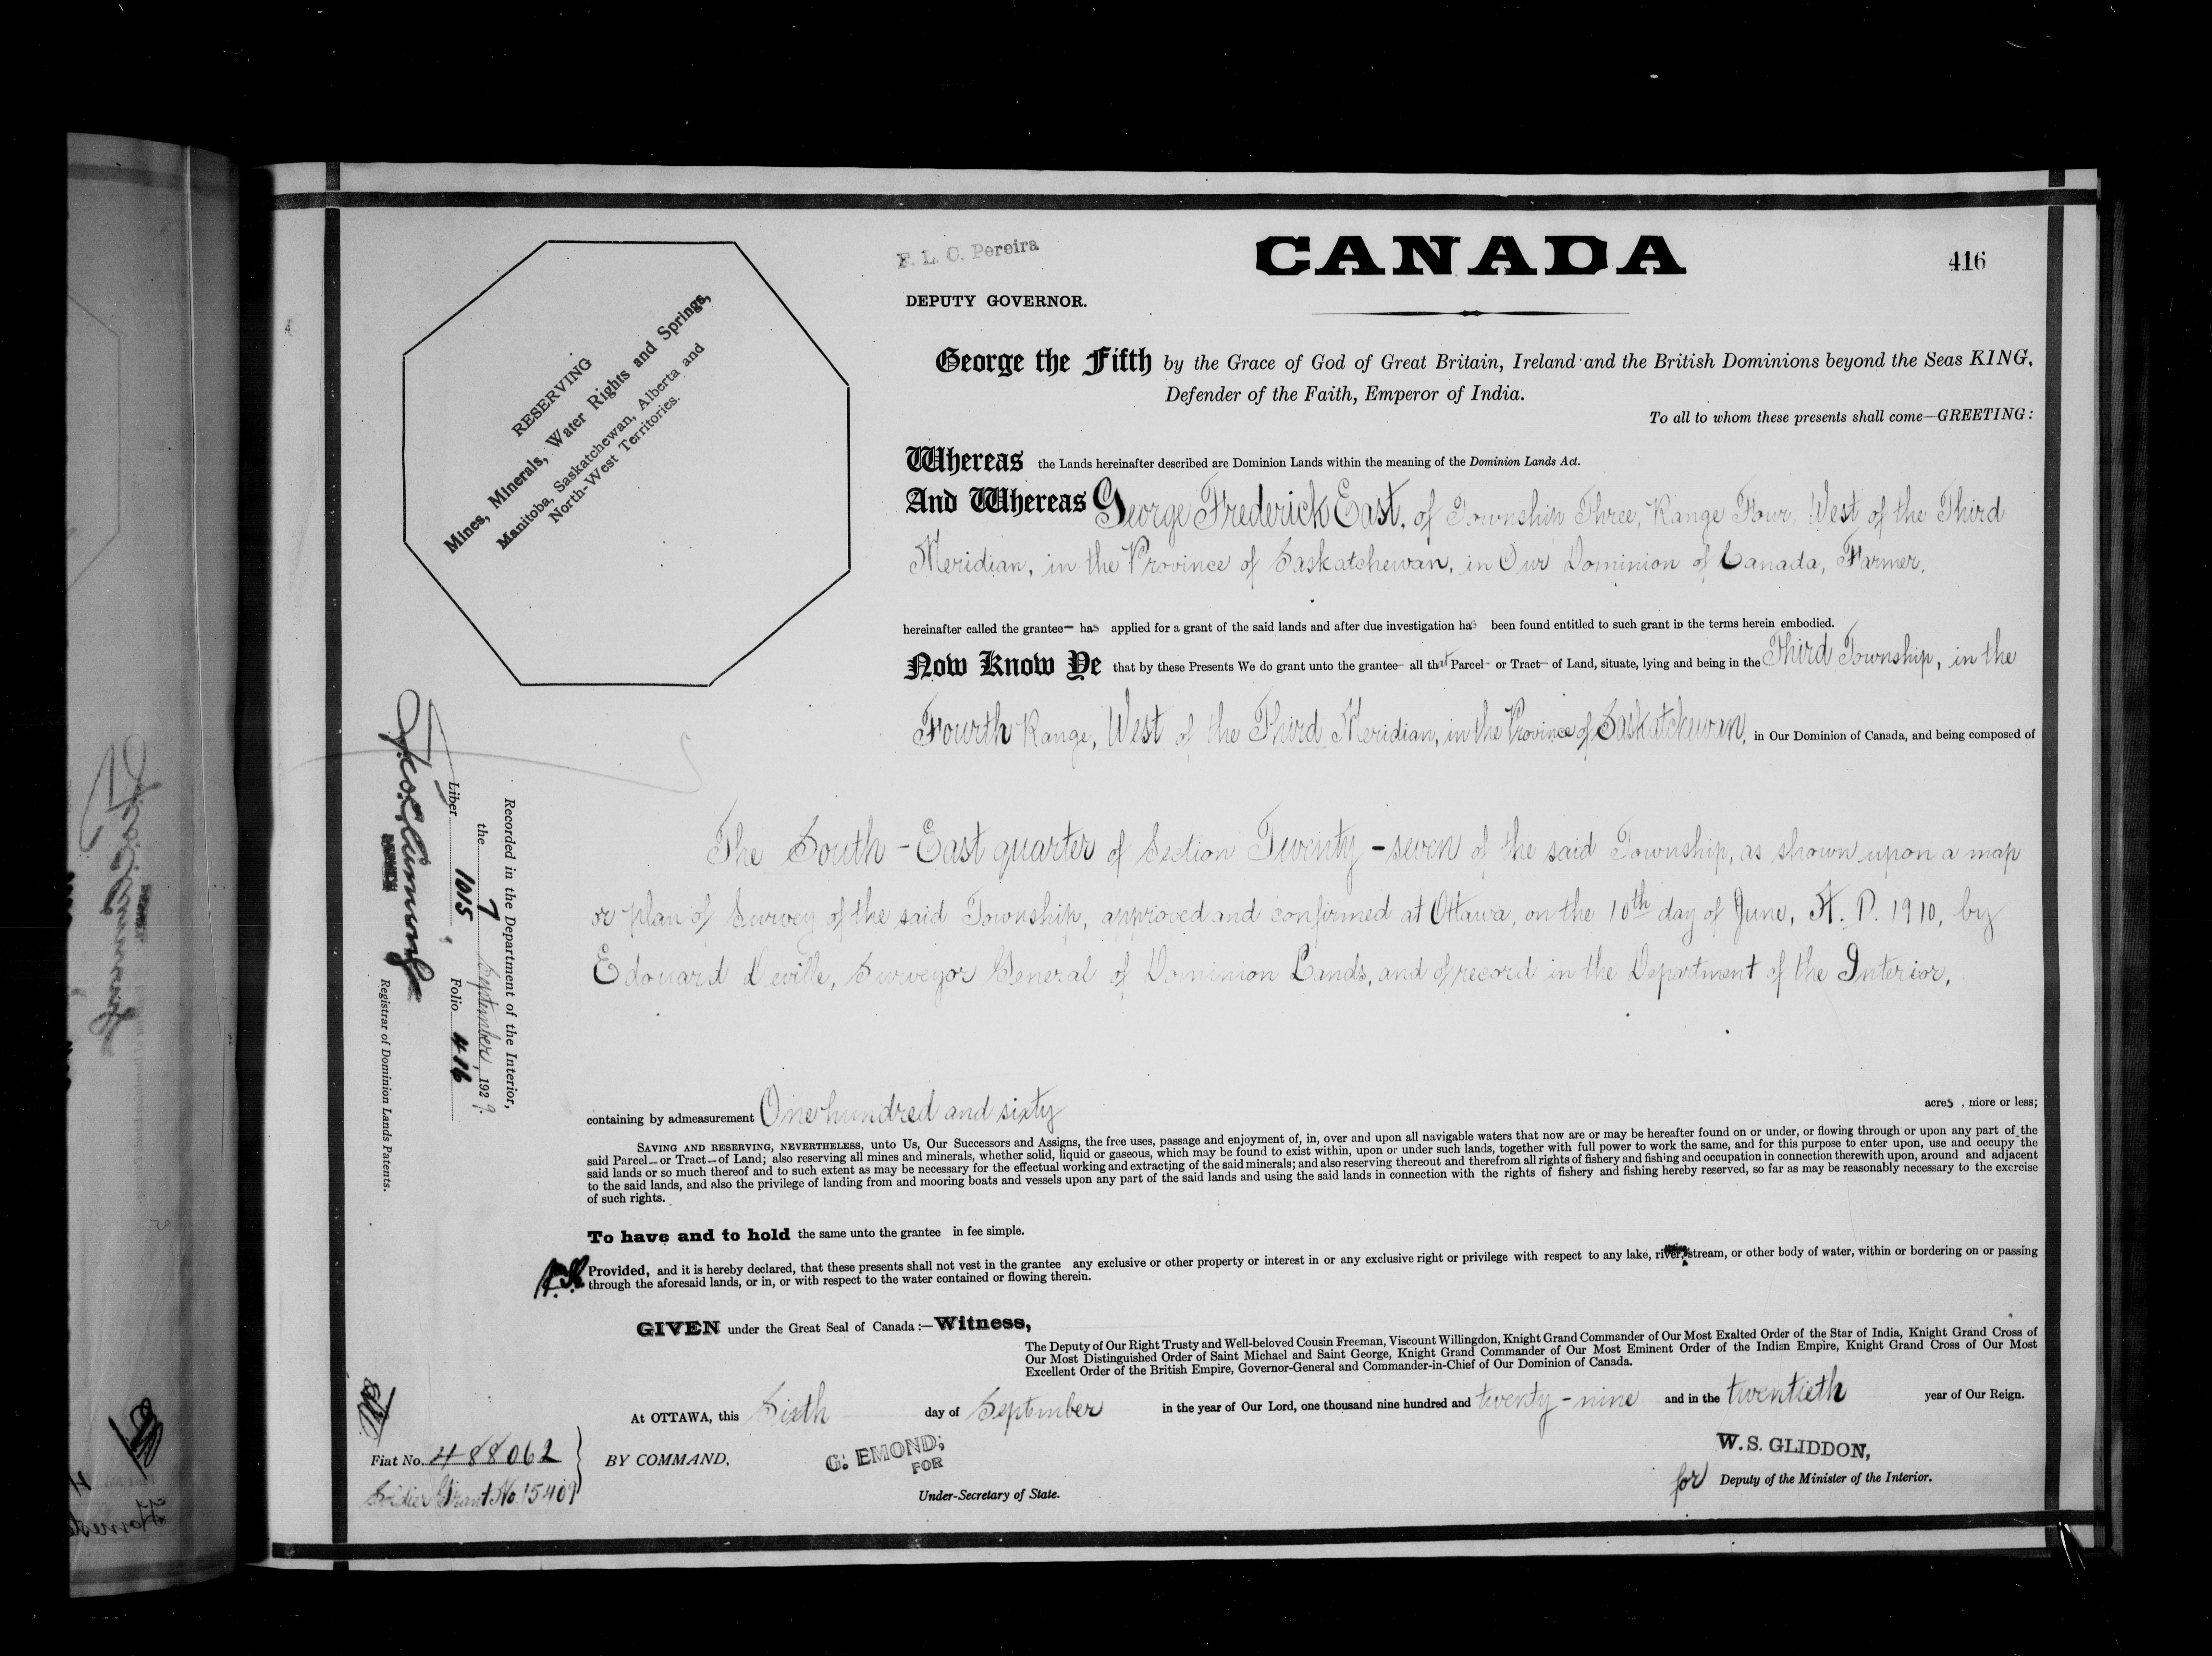 F. L. C. Pereira
DEPUTY GOVERNOR.
CANADA
416
RESERVING
Mines, Minerals, Water Rights and Springs,
Manitoba, Saskatchewan, Alberta and
North-West Territories.
George the Fifth by the Grace of God of Great Britain, Ireland and the British Dominions beyond the Seas KING,
Defender of the Faith, Emperor of India.
To all to whom these presents shall come—GREETING:
Whereas the Lands hereinafter described are Dominion Lands within the meaning of the Dominion Lands Act.
And Whereas George Frederick East, of Township Three, Range Four, West of the Third
Meridian, in the Province of Saskatchewan, in Our Dominion of Canada, Farmer,
hereinafter called the grantee— has applied for a grant of the said lands and after due investigation has been found entitled to such grant in the terms herein embodied.
Now Know Ye that by these Presents We do grant unto the grantee— all that Parcel— or Tract— of Land, situate, lying and being in the Third Township, in the
Fourth Range, West of the Third Meridian, in the Province of Saskatchewan, in Our Dominion of Canada, and being composed of
The South-East quarter of Section Twenty-seven of the said Township, as shown upon a map
or plan of Survey of the said Township, approved and confirmed at Ottawa, on the 10th day of June, A. D. 1910, by
Edouard Deville, Surveyor General of Dominion Lands, and of record in the Department of the Interior,
Recorded in the Department of the Interior,
the 7 September, 1929.
Liber 1015, Folio 416
Registrar of Dominion Lands Patents.
containing by admeasurement One hundred and sixty acres, more or less;
SAVING AND RESERVING, NEVERTHELESS, unto Us, Our Successors and Assigns, the free uses, passage and enjoyment of, in, over and upon all navigable waters that now are or may be hereafter found on or under, or flowing through or upon any part of the
said Parcel— or Tract— of Land; also reserving all mines and minerals, whether solid, liquid or gaseous, which may be found to exist within, upon or under such lands, together with full power to work the same, and for this purpose to enter upon, use and occupy the
said lands or so much thereof and to such extent as may be necessary for the effectual working and extracting of the said minerals; and also reserving thereout and therefrom all rights of fishery and fishing and occupation in connection therewith upon, around and adjacent
to the said lands, and also the privilege of landing from and mooring boats and vessels upon any part of the said lands and using the said lands in connection with the rights of fishery and fishing hereby reserved, so far as may be reasonably necessary to the exercise
of such rights.
To have and to hold the same unto the grantee in fee simple.
Provided, and it is hereby declared, that these presents shall not vest in the grantee any exclusive or other property or interest in or any exclusive right or privilege with respect to any lake, river, stream, or other body of water, within or bordering on or passing
through the aforesaid lands, or in, or with respect to the water contained or flowing therein.
GIVEN under the Great Seal of Canada:—Witness,
The Deputy of Our Right Trusty and Well-beloved Cousin Freeman, Viscount Willingdon, Knight Grand Commander of Our Most Exalted Order of the Star of India, Knight Grand Cross of
Our Most Distinguished Order of Saint Michael and Saint George, Knight Grand Commander of Our Most Eminent Order of the Indian Empire, Knight Grand Cross of Our Most
Excellent Order of the British Empire, Governor-General and Commander-in-Chief of Our Dominion of Canada.
At OTTAWA, this Sixth day of September in the year of Our Lord, one thousand nine hundred and twenty-nine and in the twentieth year of Our Reign.
Fiat No. 488062
Soldier Grant No. 15409
BY COMMAND,
G. EMOND,
FOR
Under-Secretary of State.
W. S. GLIDDON,
for Deputy of the Minister of the Interior.